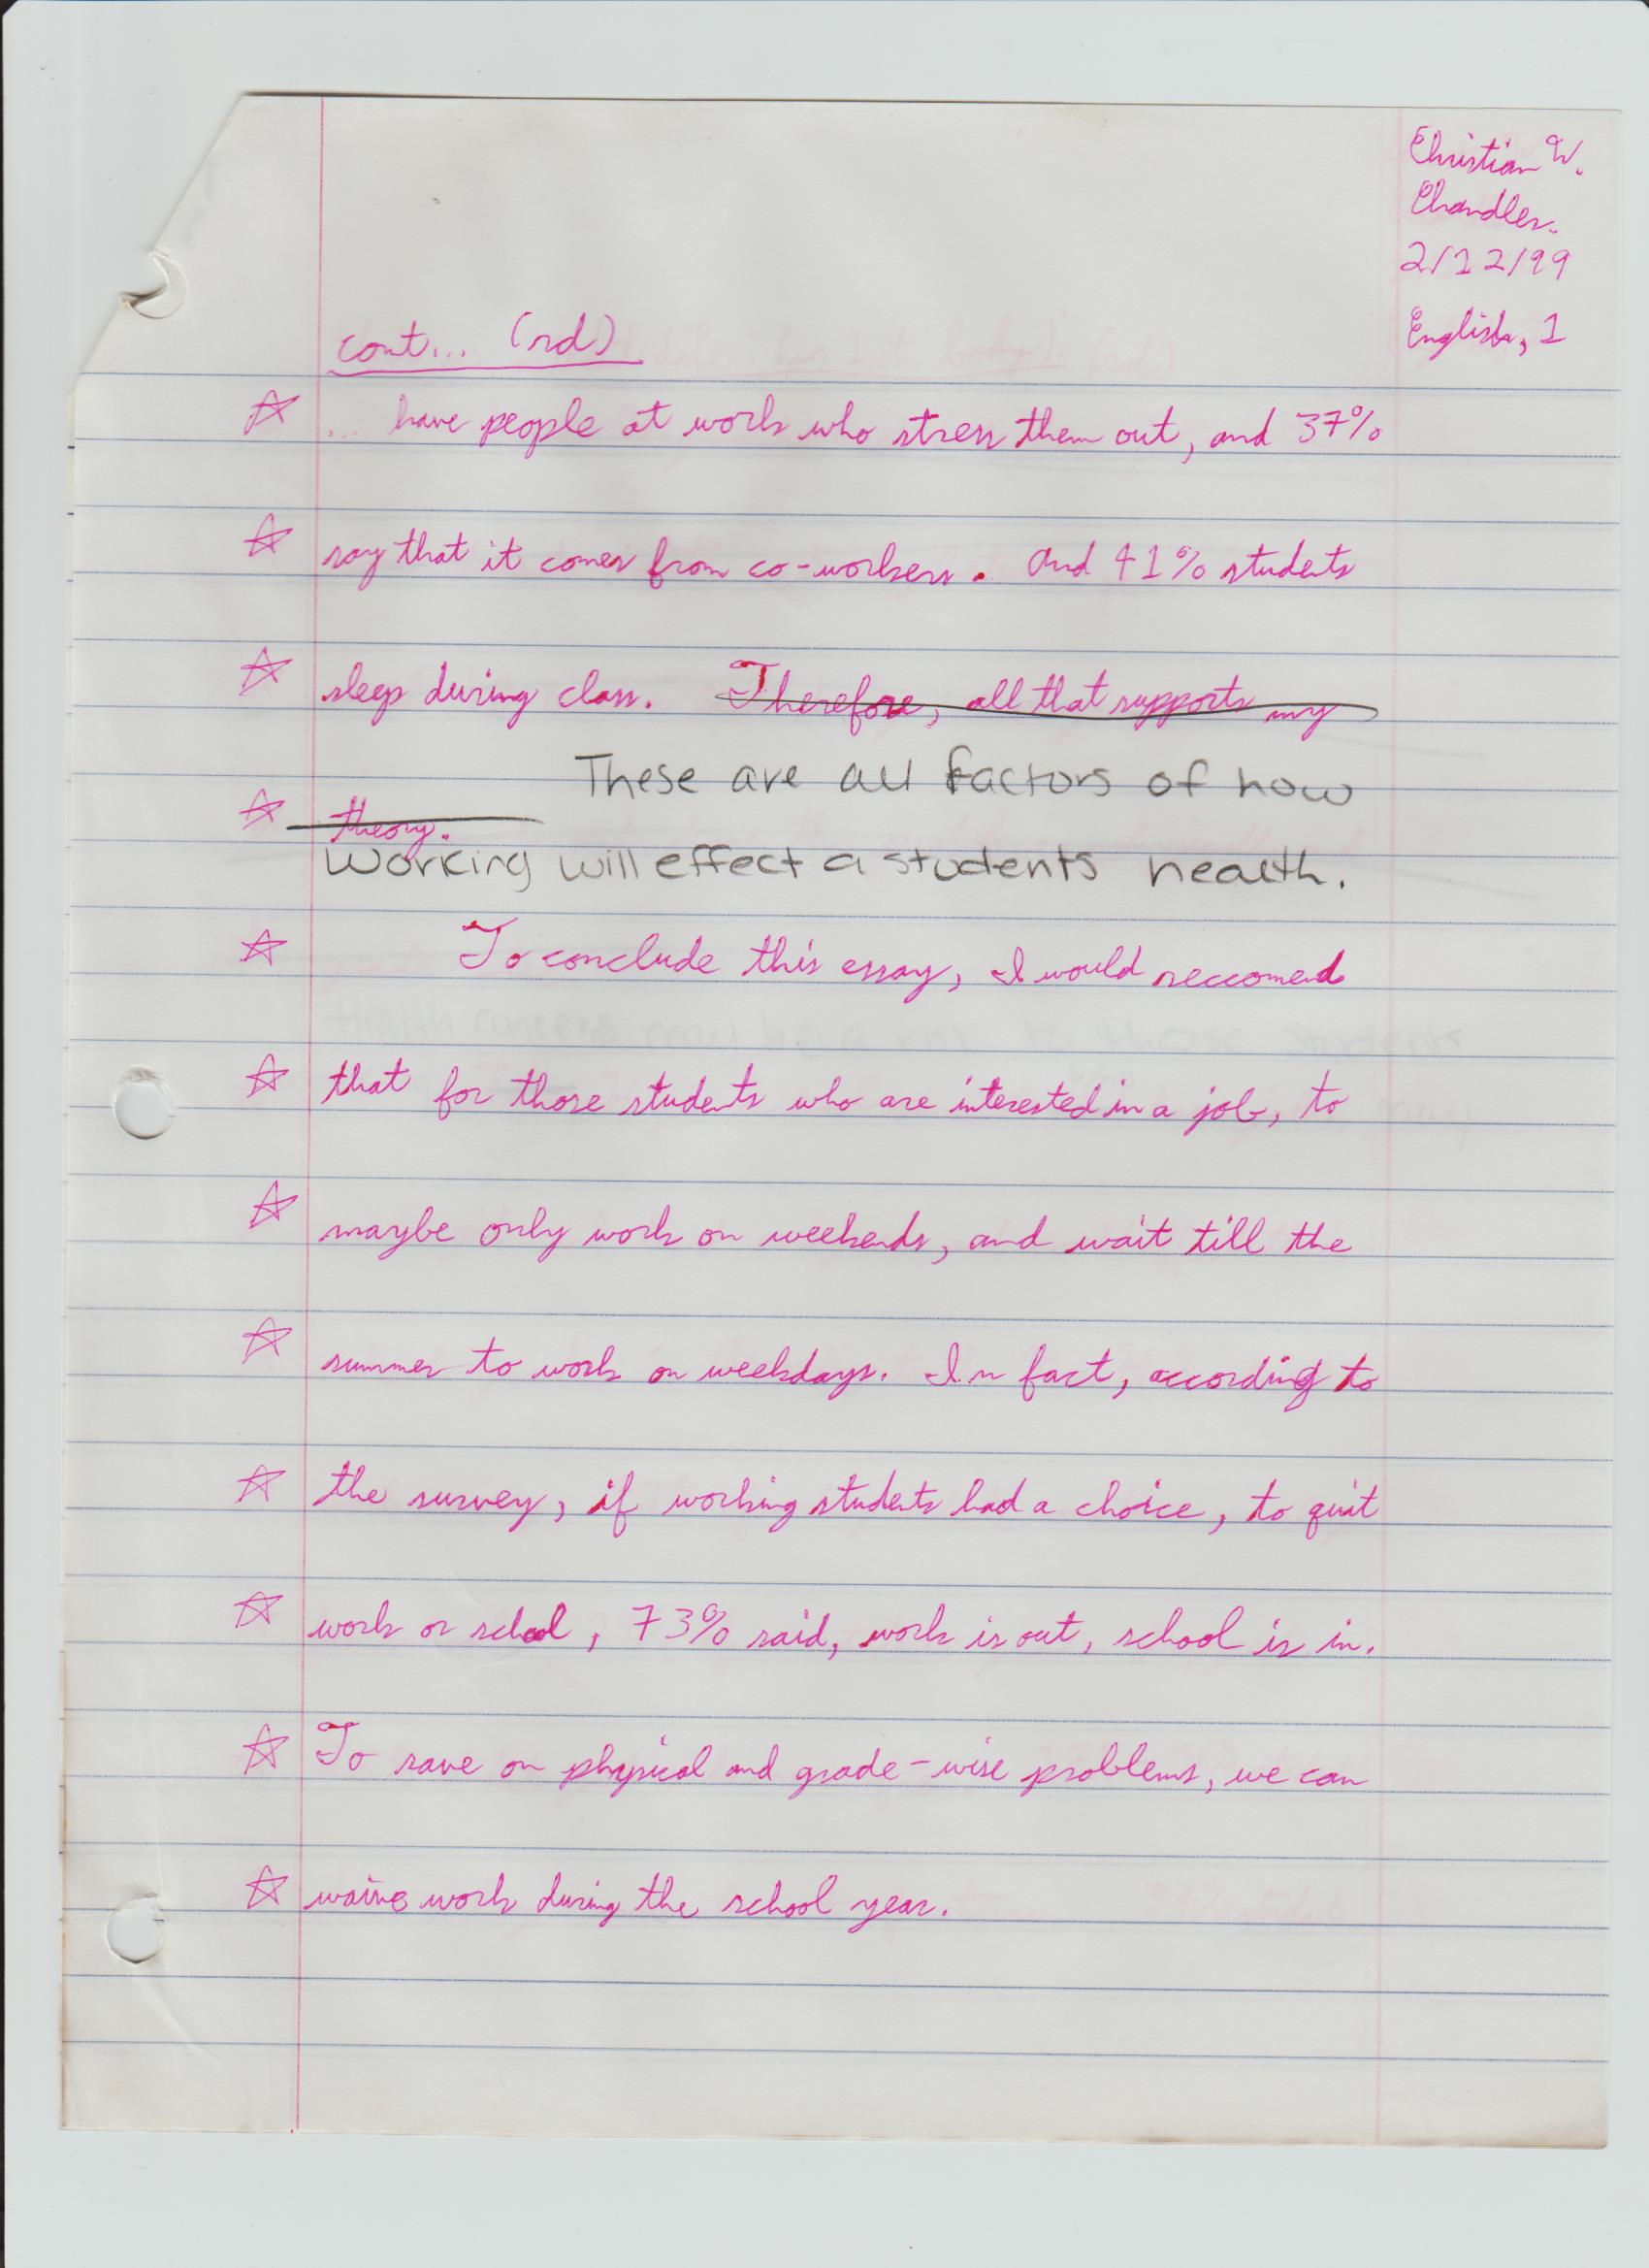 Christian W.
Chandler.
2/12/99
English, 1
cont... (rd)
☆ ... have people at work who stress them out, and 37%
☆ say that it comes from co-workers. And 41% students
☆ sleep during class. Therefore, all that supports my
These are all factors of how
☆ theory.
Working will effect a students health.
☆ To conclude this essay, I would reccomend
☆ that for those students who are interested in a job, to
☆ maybe only work on weekends, and wait till the
☆ summer to work on weekdays. In fact, according to
☆ the survey, if working students had a choice, to quit
☆ work or school, 73% said, work is out, school is in.
☆ To save on physical and grade-wise problems, we can
☆ waive work during the school year.